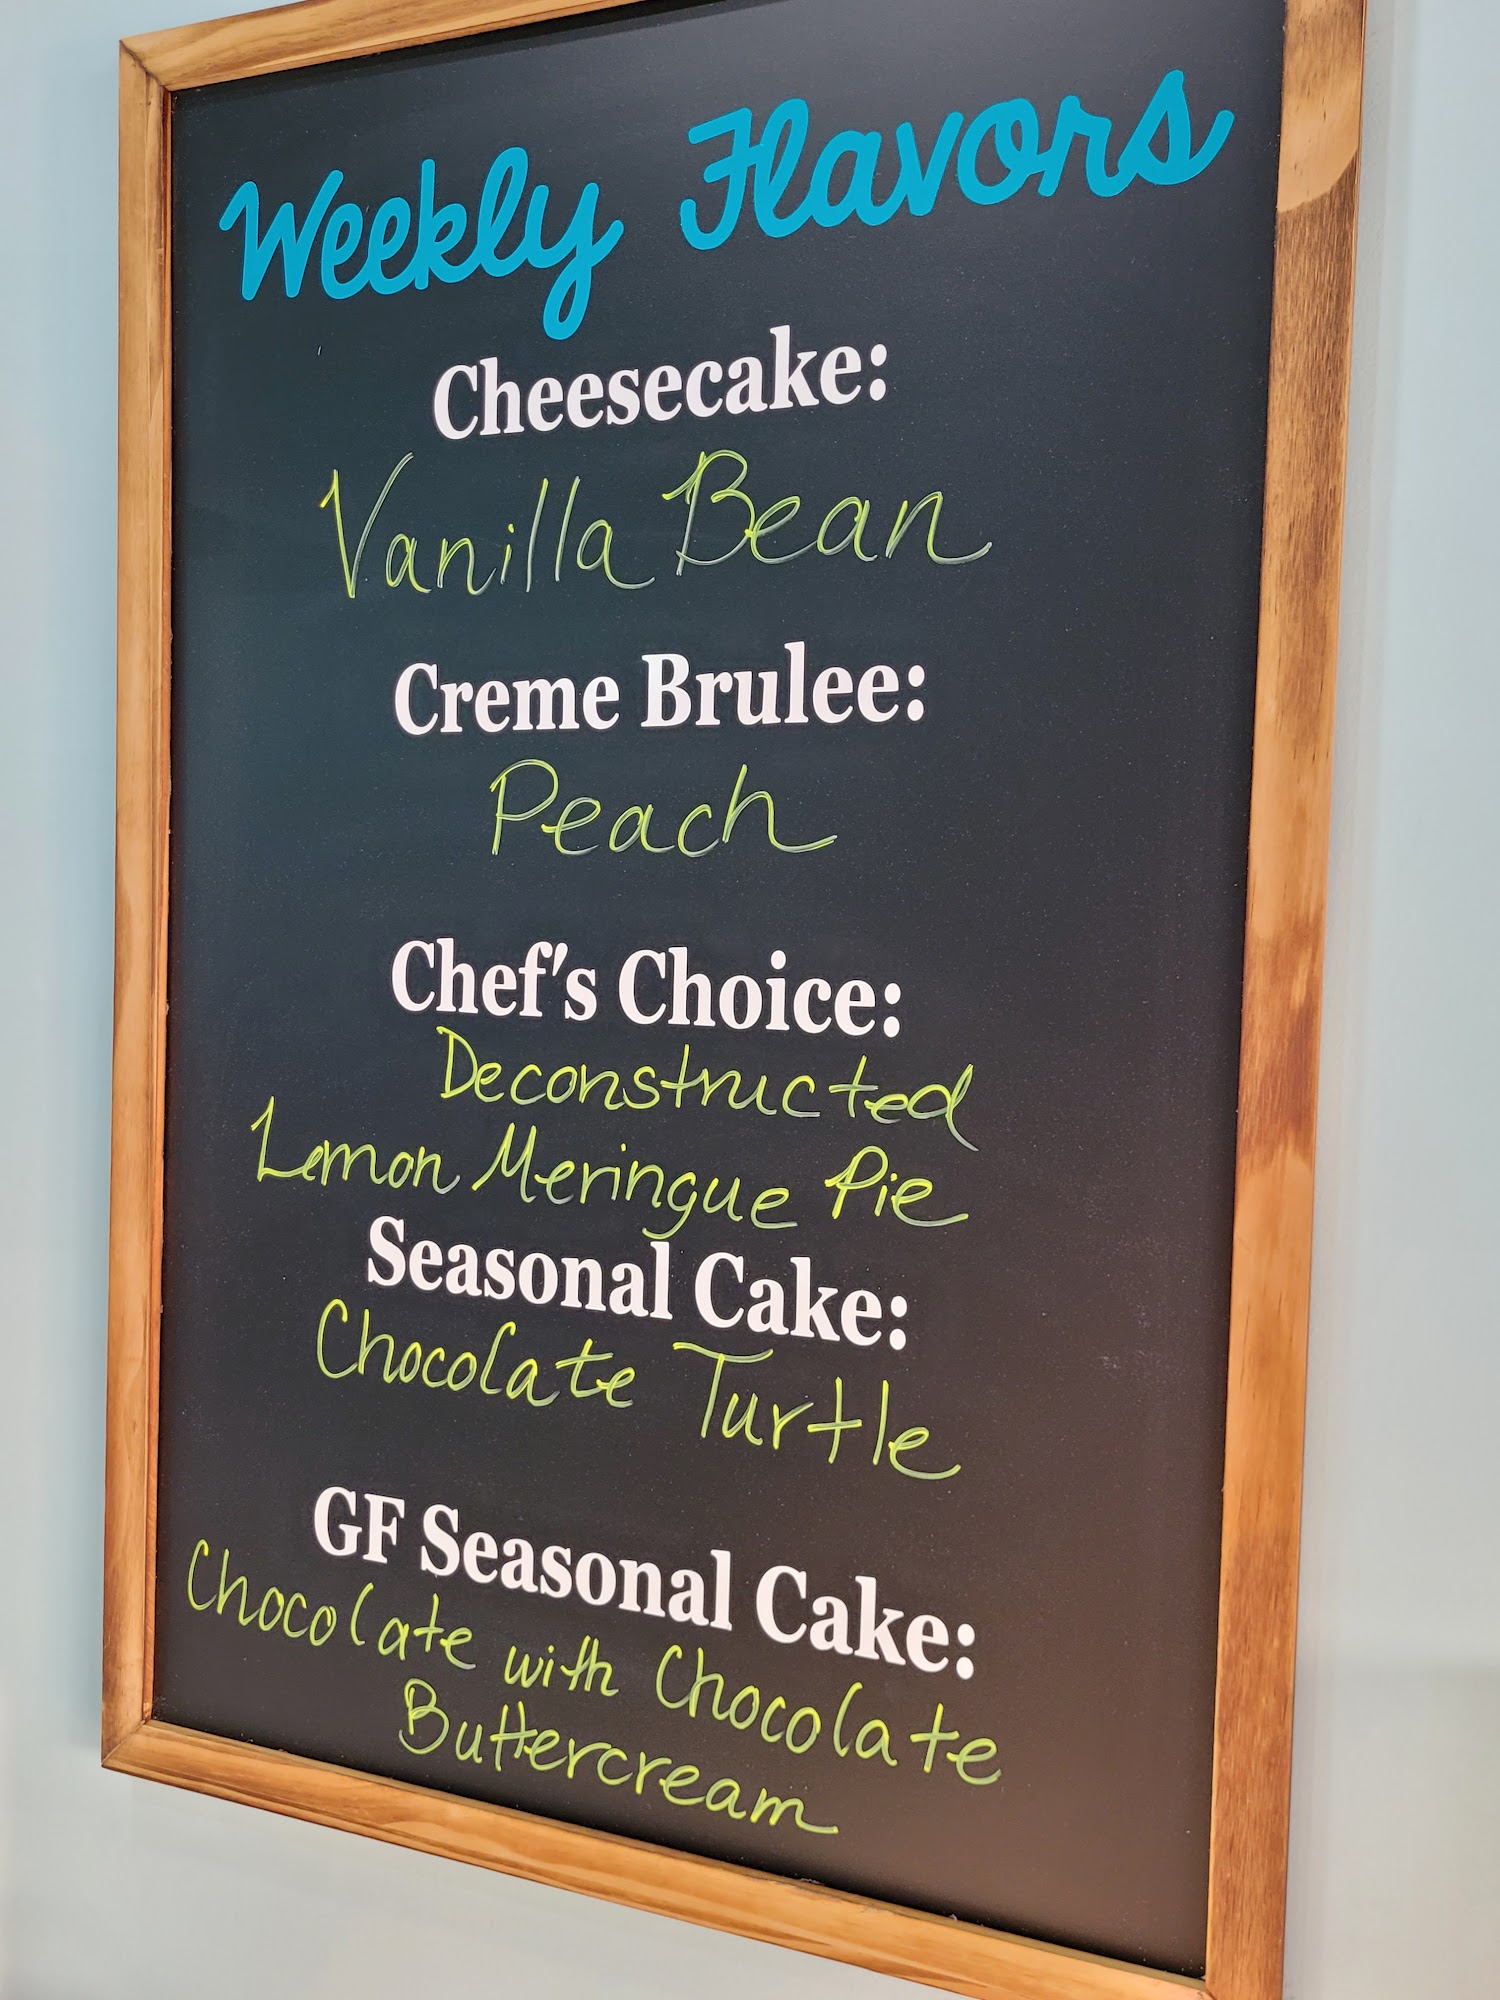 Weekly Flavors
Cheesecake:
Vanilla Bean
Creme Brulee:
Peach
Chef's Choice:
Deconstructed
Lemon Meringue Pie
Seasonal Cake:
Chocolate Turtle
GF Seasonal Cake:
Chocolate with Chocolate
Buttercream